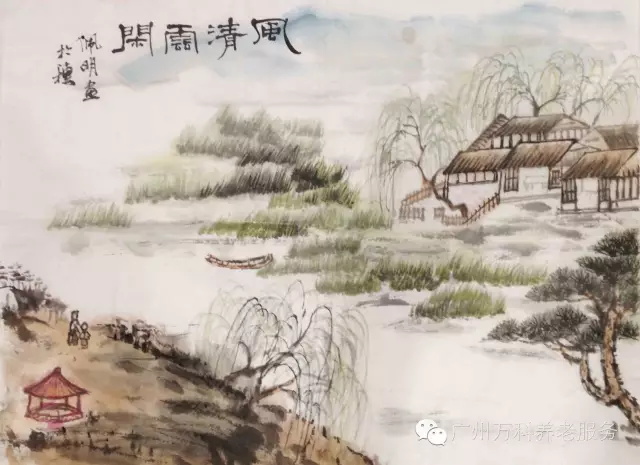 風清雲閑
佩明画
於穗
广州万科养老服务